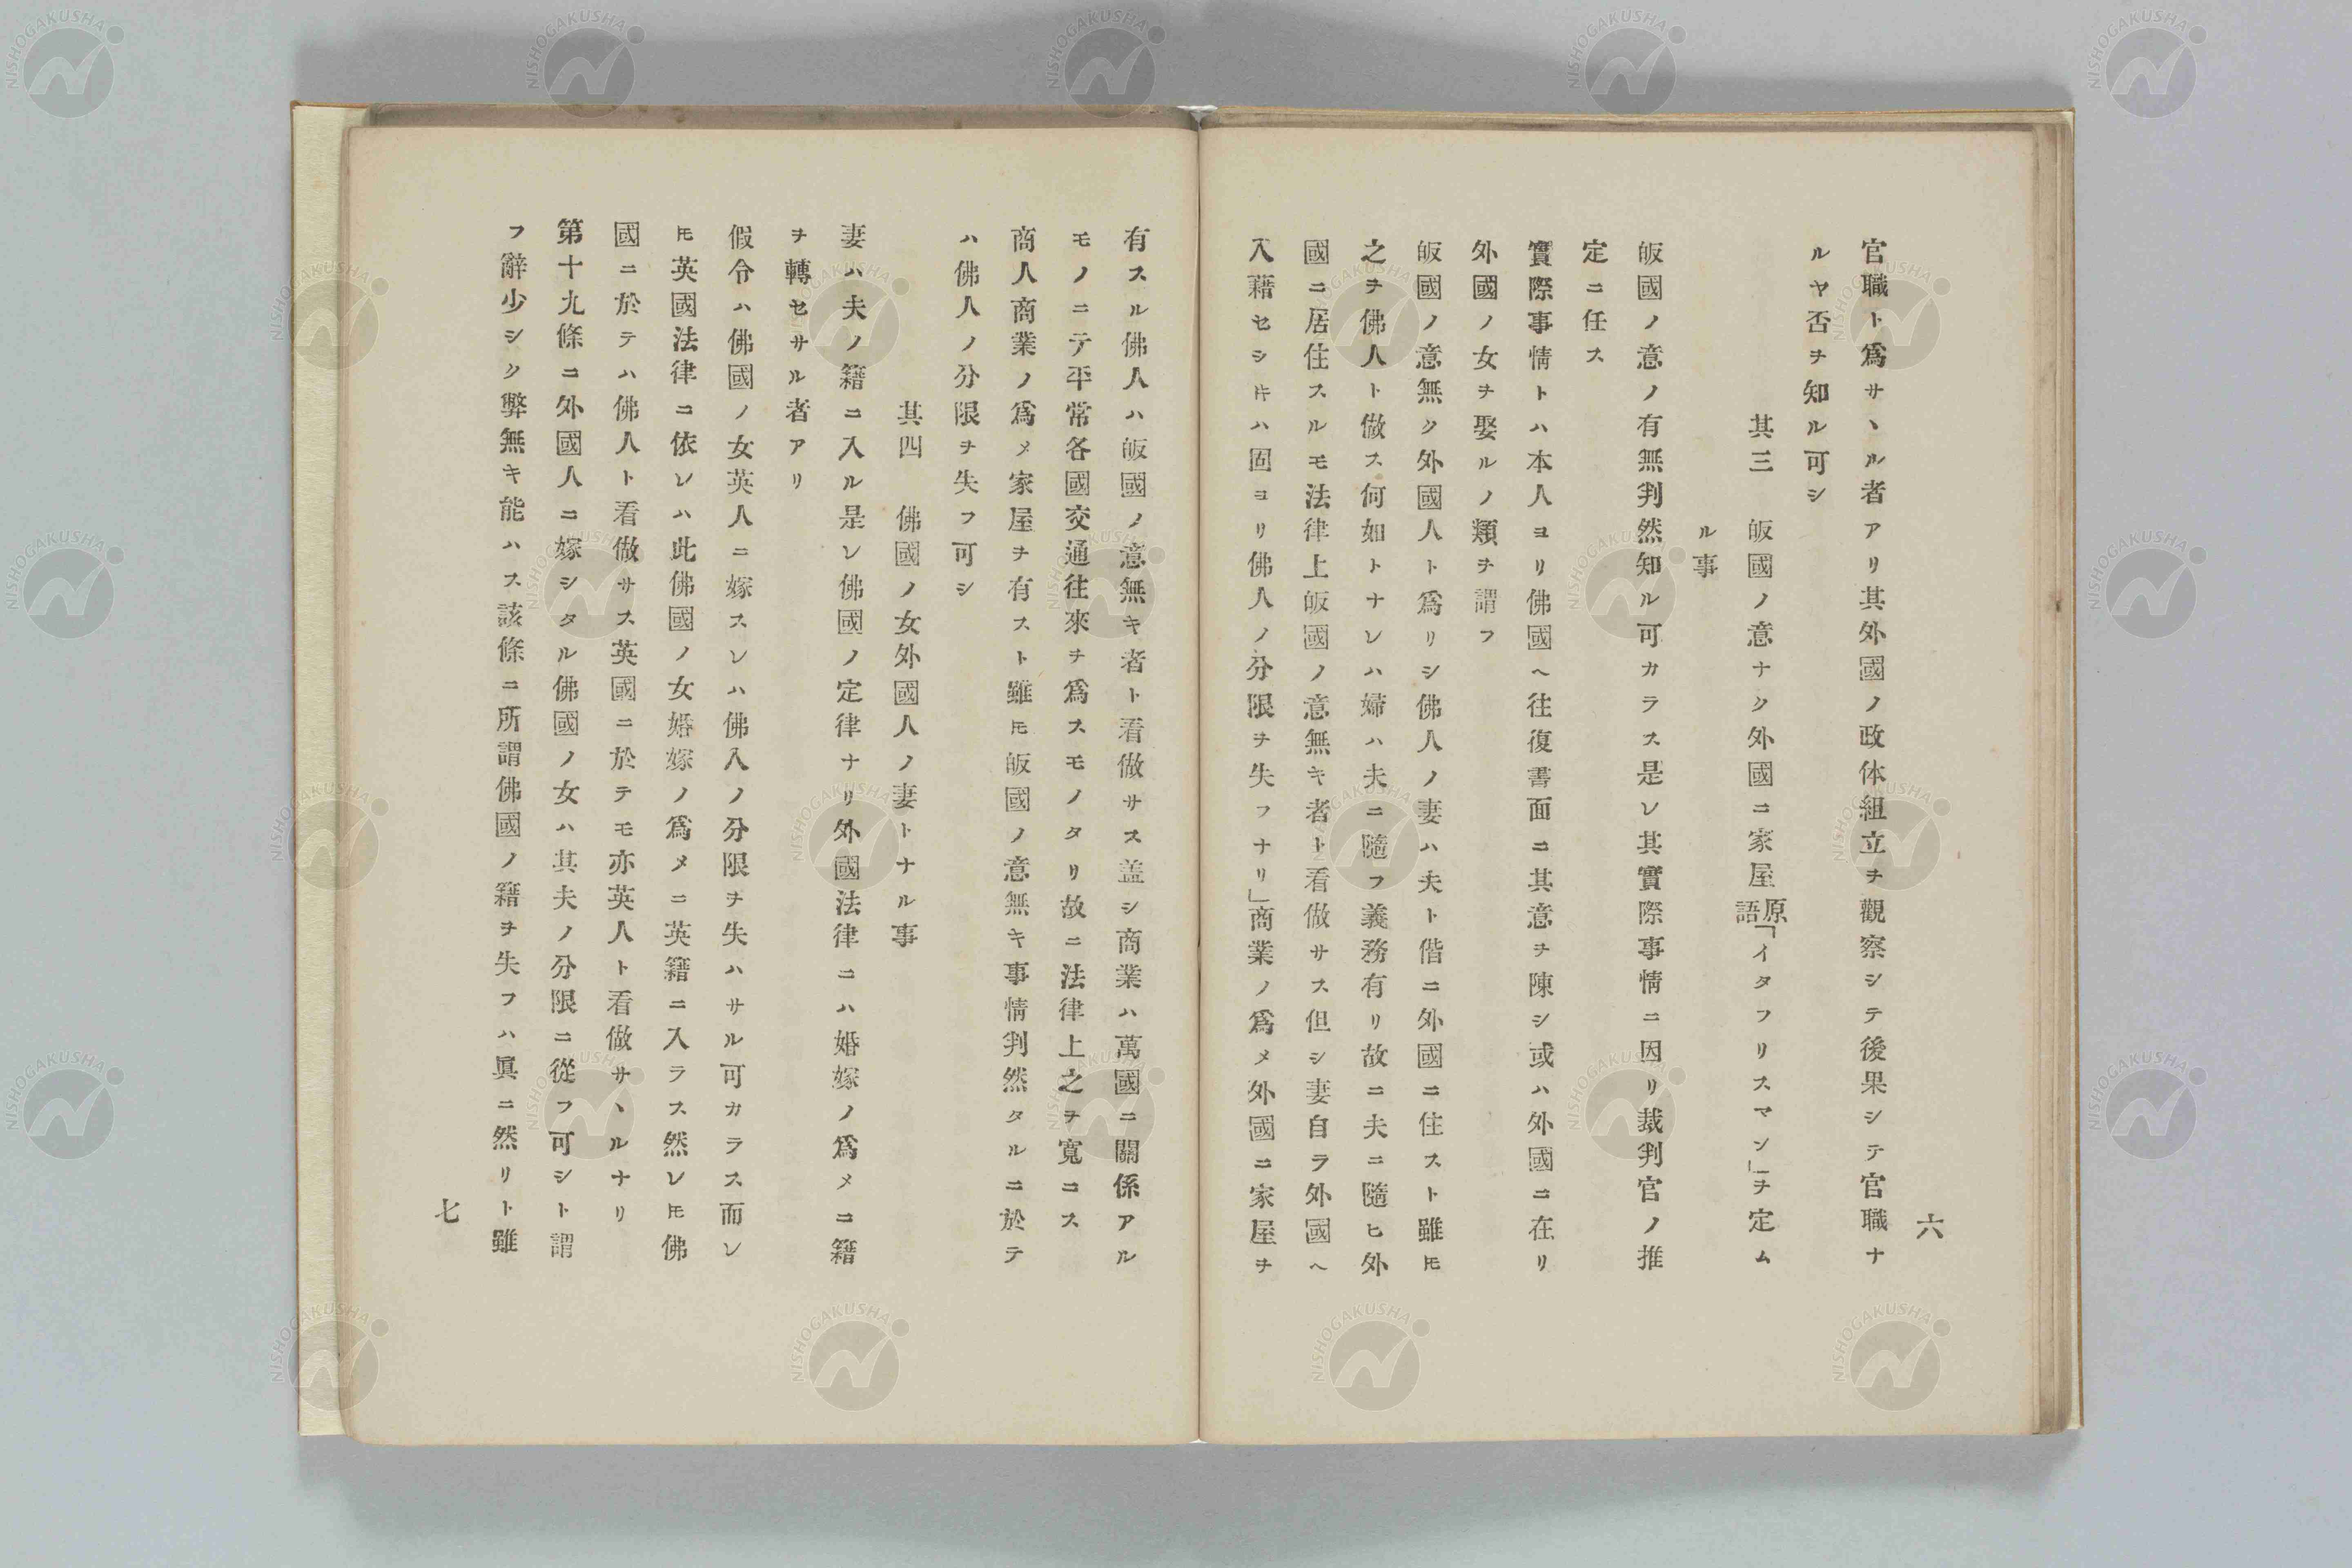 六
官職ト爲サヽル者アリ其外國ノ政体組立ヲ觀察シテ後果シテ官職ナ
ルヤ否ヲ知ル可シ
其三 皈國ノ意ナク外國ニ家屋原語「イタフリスマン」ヲ定ム
ル事
皈國ノ意ノ有無判然知ル可カラス是レ其實際事情ニ因リ裁判官ノ推
定ニ任ス
實際事情トハ本人ヨリ佛國ヘ往復書面ニ其意ヲ陳シ或ハ外國ニ在リ
外國ノ女ヲ娶ルノ類ヲ謂フ
皈國ノ意無ク外國人ト爲リシ佛人ノ妻ハ夫ト偕ニ外國ニ住スト雖𪜈
之ヲ佛人ト做ス何如トナレハ婦ハ夫ニ隨フ義務有リ故ニ夫ニ隨ヒ外
國ニ居住スルモ法律上皈國ノ意無キ者ト看做サス但シ妻自ラ外國ヘ
入籍セシ𪜈ハ固ヨリ佛人ノ分限ヲ失フナリ」商業ノ爲メ外國ニ家屋ヲ
有スル佛人ハ皈國ノ意無キ者ト看做サス盖シ商業ハ萬國ニ關係アル
モノニテ平常各國交通往來ヲ爲スモノタリ故ニ法律上之ヲ寬ニス
商人商業ノ爲メ家屋ヲ有スト雖𪜈皈國ノ意無キ事情判然タルニ於テ
ハ佛人ノ分限ヲ失フ可シ
其四 佛國ノ女外國人ノ妻トナル事
妻ハ夫ノ籍ニ入ル是レ佛國ノ定律ナリ外國法律ニハ婚嫁ノ爲メニ籍
ヲ轉セサル者アリ
假令ハ佛國ノ女英人ニ嫁スレハ佛人ノ分限ヲ失ハサル可カラス而レ
𪜈英國法律ニ依レハ此佛國ノ女婚嫁ノ爲メニ英籍ニ入ラス然レ𪜈佛
國ニ於テハ佛人ト看做サス英國ニ於テモ亦英人ト看做サヽルナリ
第十九條ニ外國人ニ嫁シタル佛國ノ女ハ其夫ノ分限ニ從フ可シト謂
フ辭少シク弊無キ能ハス該條ニ所謂佛國ノ籍ヲ失フハ眞ニ然リト雖
七
NISHOGAKUSHA